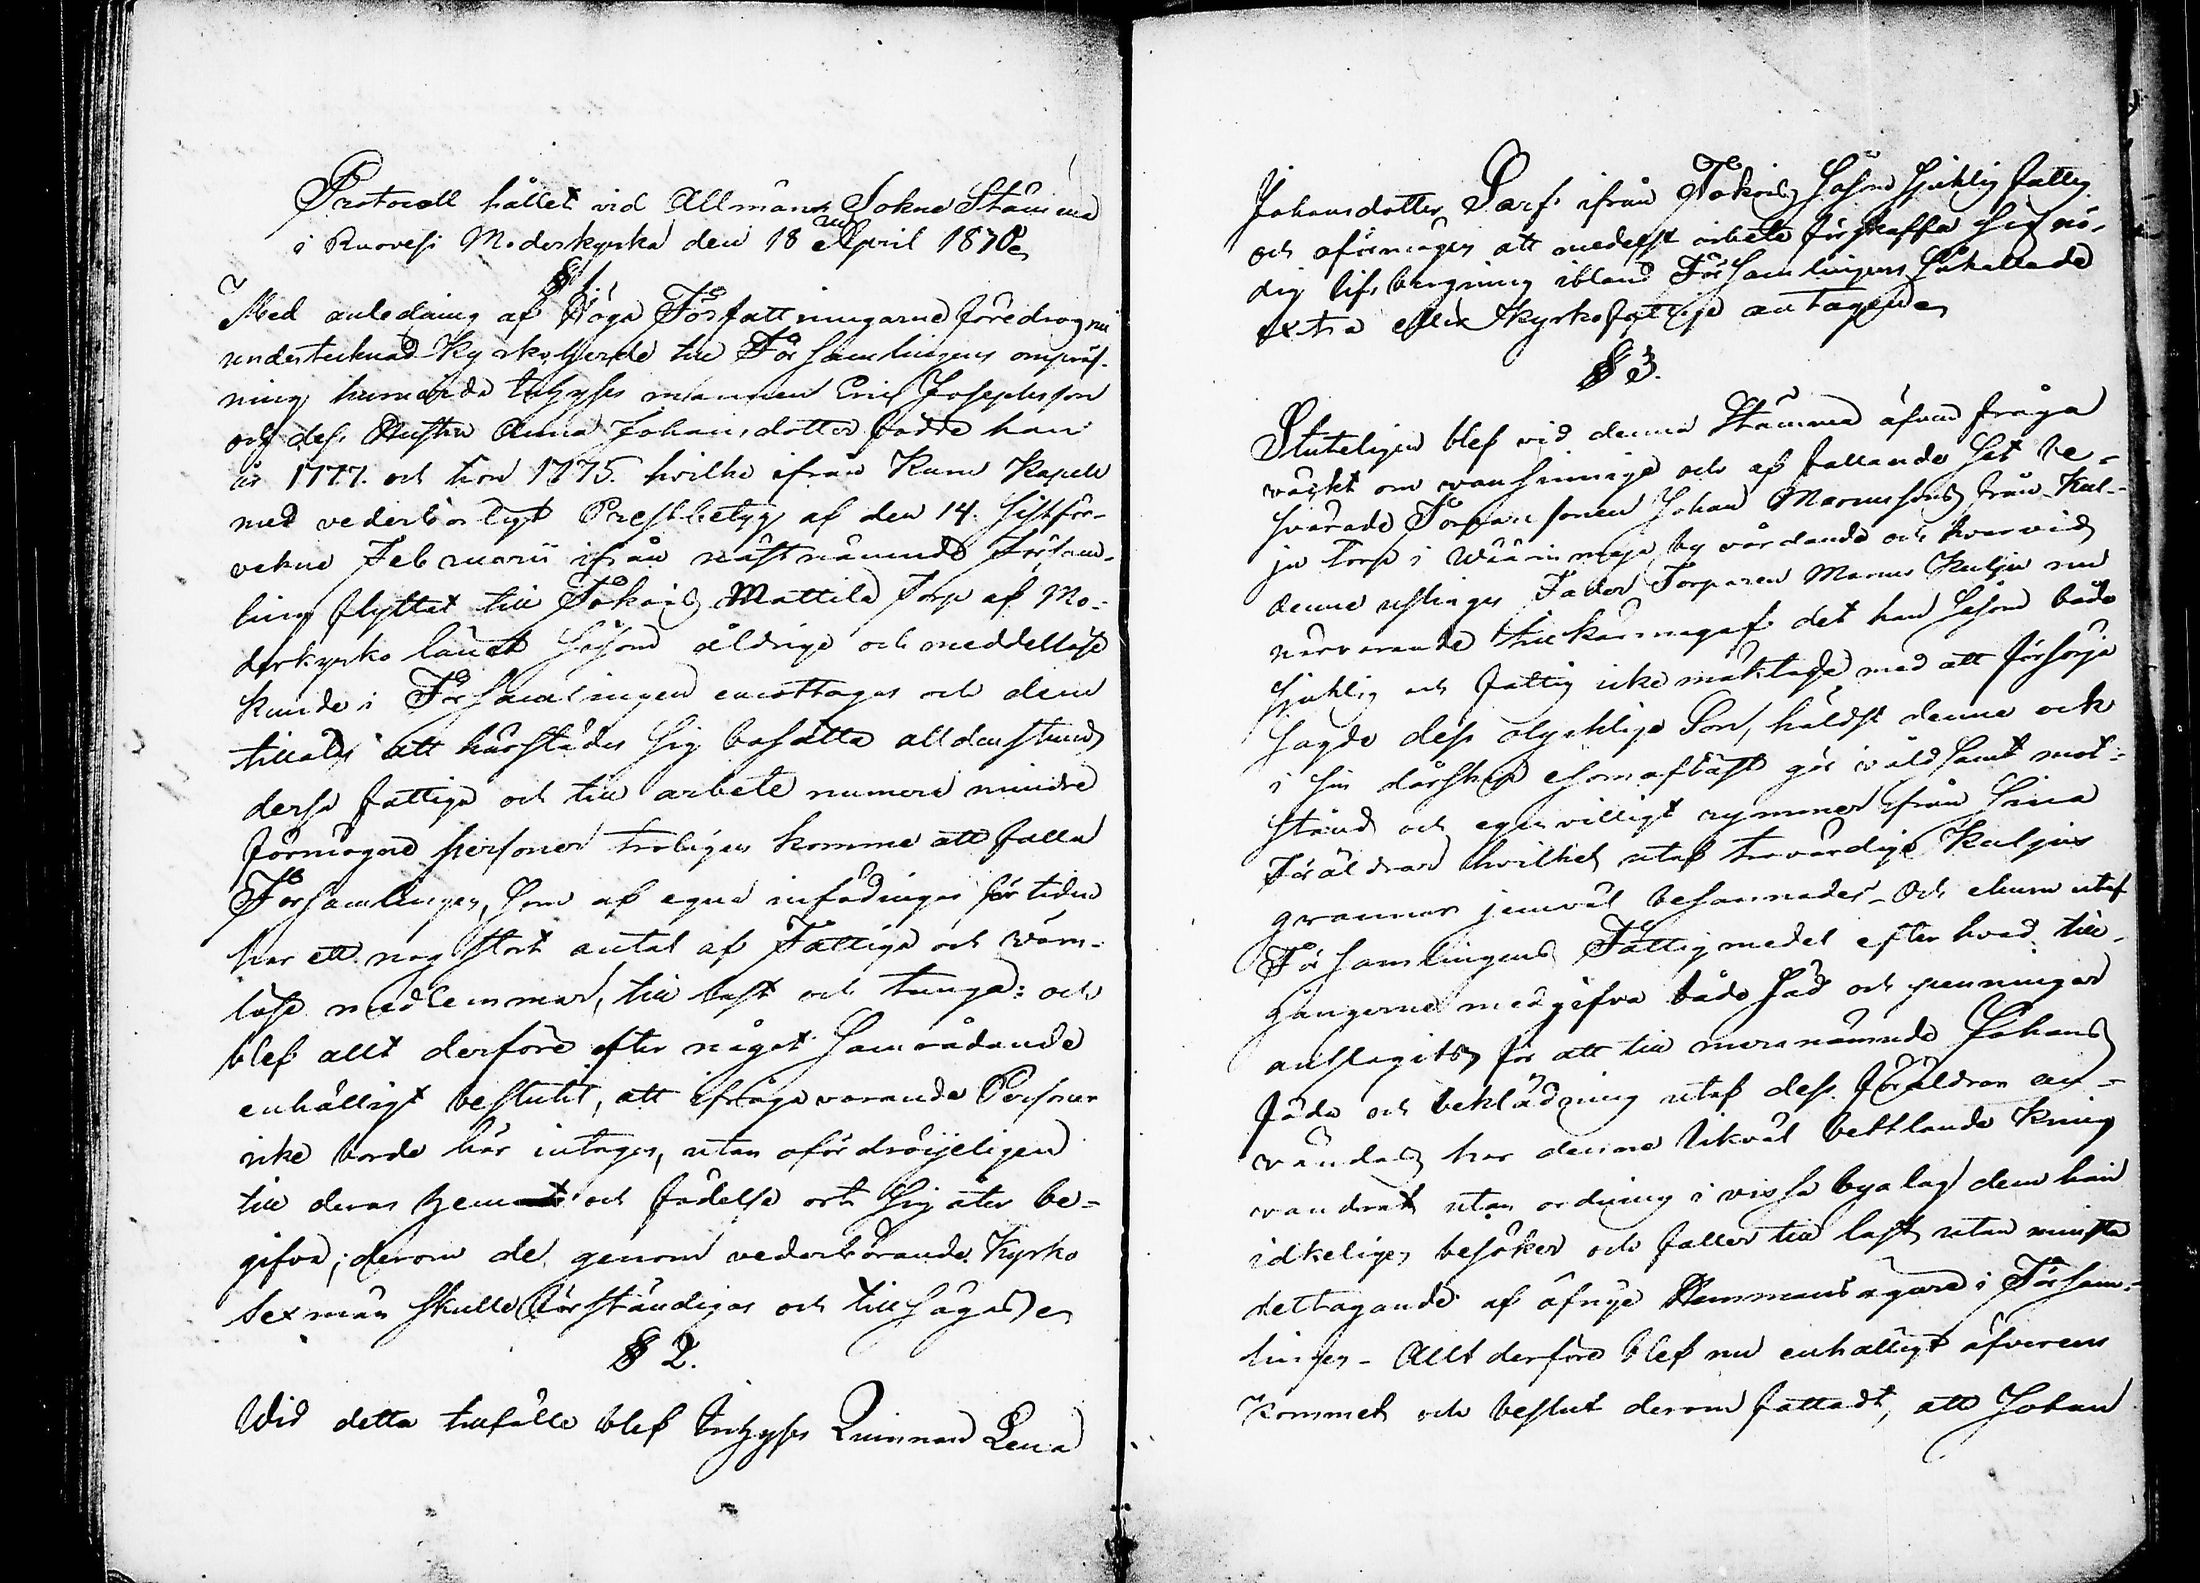 Protocoll hållet vid Allmän Sokne Stämma
i Ruovesi Moderkyrka den 18 April 1830
§ 1.
Med anledning af Höga Författningarne föredrog nu
undertecknad Kyrkoherde till Församlingens ompröf-
ning huruvida Inhyses mannen Eric Josephsson
och dess Hustru Anna Johansdotter födde han
år 1777. och hon 1775. hvilke ifrån Kuru Kapell
med vederbörligt Prestbetyg af den 14. sistför-
vekne Februarii ifrån nästnämnde Försam-
ling flyttat till Mattila Torp af Mo-
derkyrko länet såsom åldrige och meddellöse
kunde i Församlingen emottagas och dem
tillåtas att härstädes sig bosätta alldenstund
desse fattiga och till arbete numera mindre
förmögne personer troligen komme att falla
Församlingen, som af egne infödingar för tiden
har ett nog stort antal af Fattige och värn-
löse medlemmar, till last och tunga: och
blef allt derföre efter något samrådande
enhälligt beslutit, att ifrågavarande Personer
icke borde här intagas, utan ofördröijeligen
till deras hemort och födelse ort sig åter be-
gifva; derom de genom vederbörande Kyrko
Sexmän skulle förständigas och tillsägas
§ 2.
Wid detta tillfälle blef Inhyses Quinnan Lena
Johansdotter Sarf ifrån såsom sjuklig fattig
och oförmögen att medelst arbete förskaffa sig nö-
dig lifsbergning ibland Församlingens såkallade
extra eller kyrkofattige antagen
§ 3.
Sluteligen blef vid denna Stämma äfven fråga
väckt om vansinnige och af fallande sot be-
svärade Torpare sonen Johan Marcusson från Kul-
ju torp i Wäärinmaja by vårdande och hvarvid
denne uslinges Fader Torparen Marcus Kulju nu
närvarande tillkännagaf det han såsom både
sjuklig och fattig icke mäktade med att försörja
sagde dess olycklige Son, häldst denne ock
i sin dårskap som oftast gör våldsamt mot-
stånd och egenvilligt rymmer ifrån sina
Föräldrar hvilket utaf trovärdige Kuljus
grannar jemväl besannades. Och ehuru utaf
Församlingens Fattigmedel efter hvad till-
gångerne medgifva både säd och penningar
anslagits för att till merenämnde Johans
föda och beklädning utaf dess föräldrar an-
vändas har denne likväl bettlande kring
vandrat utan ordning i vissa byalag dem han
idkeligen besöker och faller till last utan minsta
deltagande af öfrige Hemmansägare i Försam-
lingen. Allt derföre blef nu enhälligt öfverens
kommet och beslut derom fattadt, att Johan